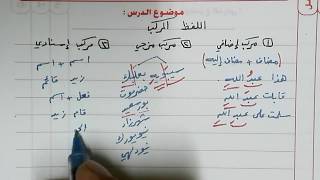 موضوع الدرس:
اللفظ المركب
① مركب إضافي
② مركب مزجي
③ مركب إسنادي
مضاف + مضاف إليه
هذا عبدُ اللهِ
قابلت عبدَ اللهِ
سلمت على عبدِ اللهِ
سيبويه
بعلبك
حضرموت
بورسعيد
شهرزاد
نيويورك
نيودلهي
اسم + اسم
زيد قائم
فعل + اسم
قام زيد